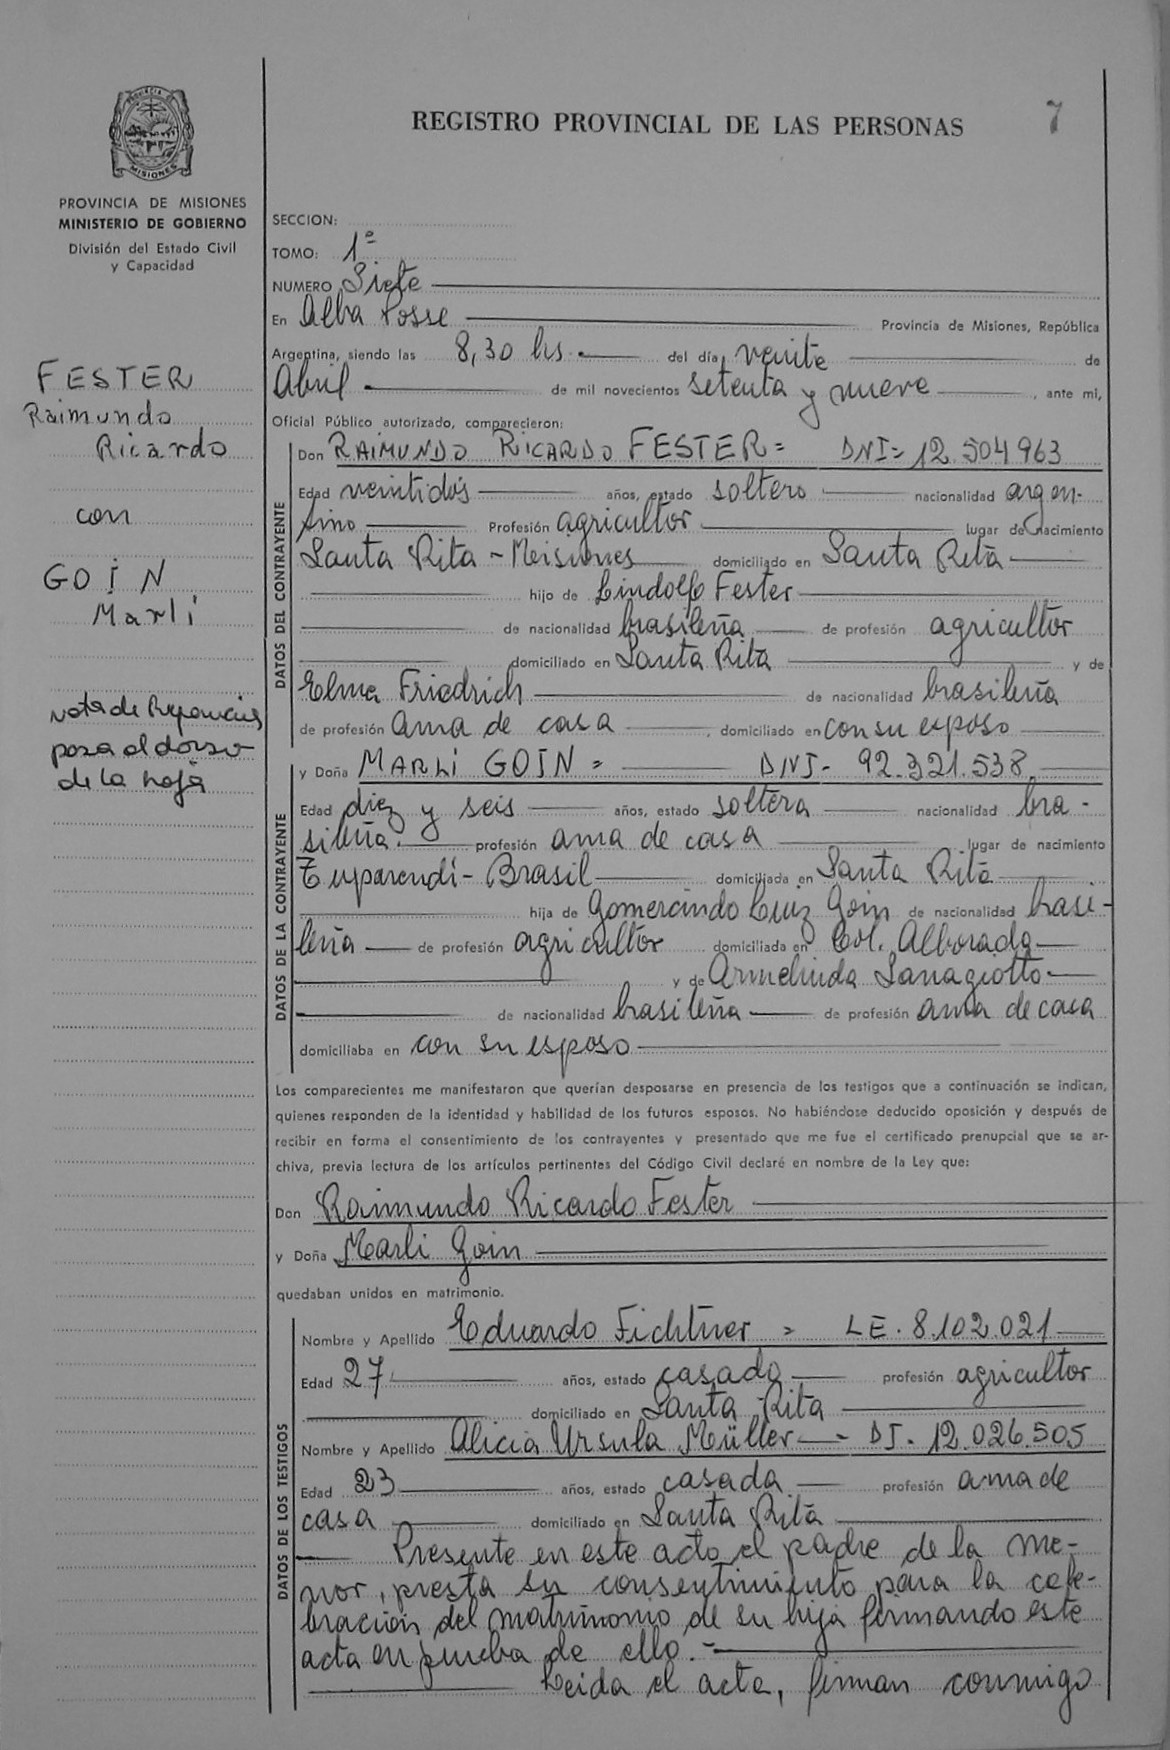 7
REGISTRO PROVINCIAL DE LAS PERSONAS
PROVINCIA DE
MISIONES
PROVINCIA DE MISIONES
MINISTERIO DE GOBIERNO
División del Estado Civil
y Capacidad
FESTER
Raimundo
Ricardo
con
GOIN
Marli
Nota de
pasa al dorso
de la hoja
SECCION:
TOMO: 1º
NUMERO Siete
En Alba Posse Provincia de Misiones, República
Argentina, siendo las 8,30 hs. del día veinte de
Abril de mil novecientos setenta y nueve, ante mi,
Oficial Público autorizado, comparecieron:
DATOS DEL CONTRAYENTE
Don RAIMUNDO RICARDO FESTER = DNI= 12.504963
Edad veintidós años, estado soltero nacionalidad argen-
tino Profesión agricultor lugar de nacimiento
Santa Rita - Meisiones domiciliado en Santa Rita
hijo de Lindolfo Fester
de nacionalidad brasileña de profesión agricultor
domiciliado en Santa Rita y de
Elma Friedrich de nacionalidad brasileña
de profesión ama de casa, domiciliado en con su esposo
DATOS DE LA CONTRAYENTE
y Doña MARLI GOIN = DNI- 92.321.538
Edad diez y seis años, estado soltera nacionalidad bra-
sileña. profesión ama de casa lugar de nacimiento
Tuparendí - Brasil domiciliada en Santa Rita
hija de Gomercindo Luiz Goin de nacionalidad brasi-
leña de profesión agricultor domiciliada en Col. Alborada
y de Armelinda Sanagiotto
de nacionalidad brasileña de profesión ama de casa
domiciliaba en con su esposo
Los comparecientes me manifestaron que querían desposarse en presencia de los testigos que a continuación se indican,
quienes responden de la identidad y habilidad de los futuros esposos. No habiéndose deducido oposición y después de
recibir en forma el consentimiento de los contrayentes y presentado que me fue el certificado prenupcial que se ar-
chiva, previa lectura de los artículos pertinentes del Código Civil declaré en nombre de la Ley que:
Don Raimundo Ricardo Fester
y Doña Marli Goin
quedaban unidos en matrimonio.
DATOS DE LOS TESTIGOS
Nombre y Apellido Eduardo Fichtner = LE. 8.102.021
Edad 27 años, estado casado profesión agricultor
domiciliado en Santa Rita
Nombre y Apellido Alicia Ursula Müller - DI. 12.026.505
Edad 23 años, estado casada profesión ama de
casa domiciliado en Santa Rita
Presente en este acto el padre de la me-
nor, presta su consentimiento para la cele-
bración del matrimonio de su hija firmando este
acta en prueba de ello.-
Leida el acta, firman conmigo